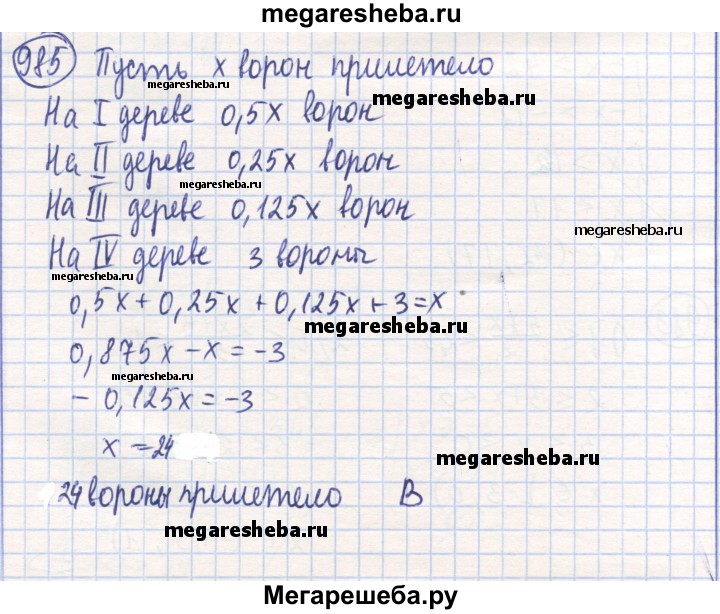 megaresheba.ru
985 Пусть x ворон прилетело
megaresheba.ru
megaresheba.ru
megaresheba.ru
На I дереве 0,5x ворон
На II дереве 0,25x ворон
megaresheba.ru
На III дереве 0,125x ворон
megaresheba.ru
На IV дереве 3 вороны
megaresheba.ru
0,5x + 0,25x + 0,125x + 3 = x
megaresheba.ru
0,875x - x = -3
megaresheba.ru
- 0,125x = -3
x = 24
megaresheba.ru
24 вороны прилетело В
megaresheba.ru
Мегарешеба.ру